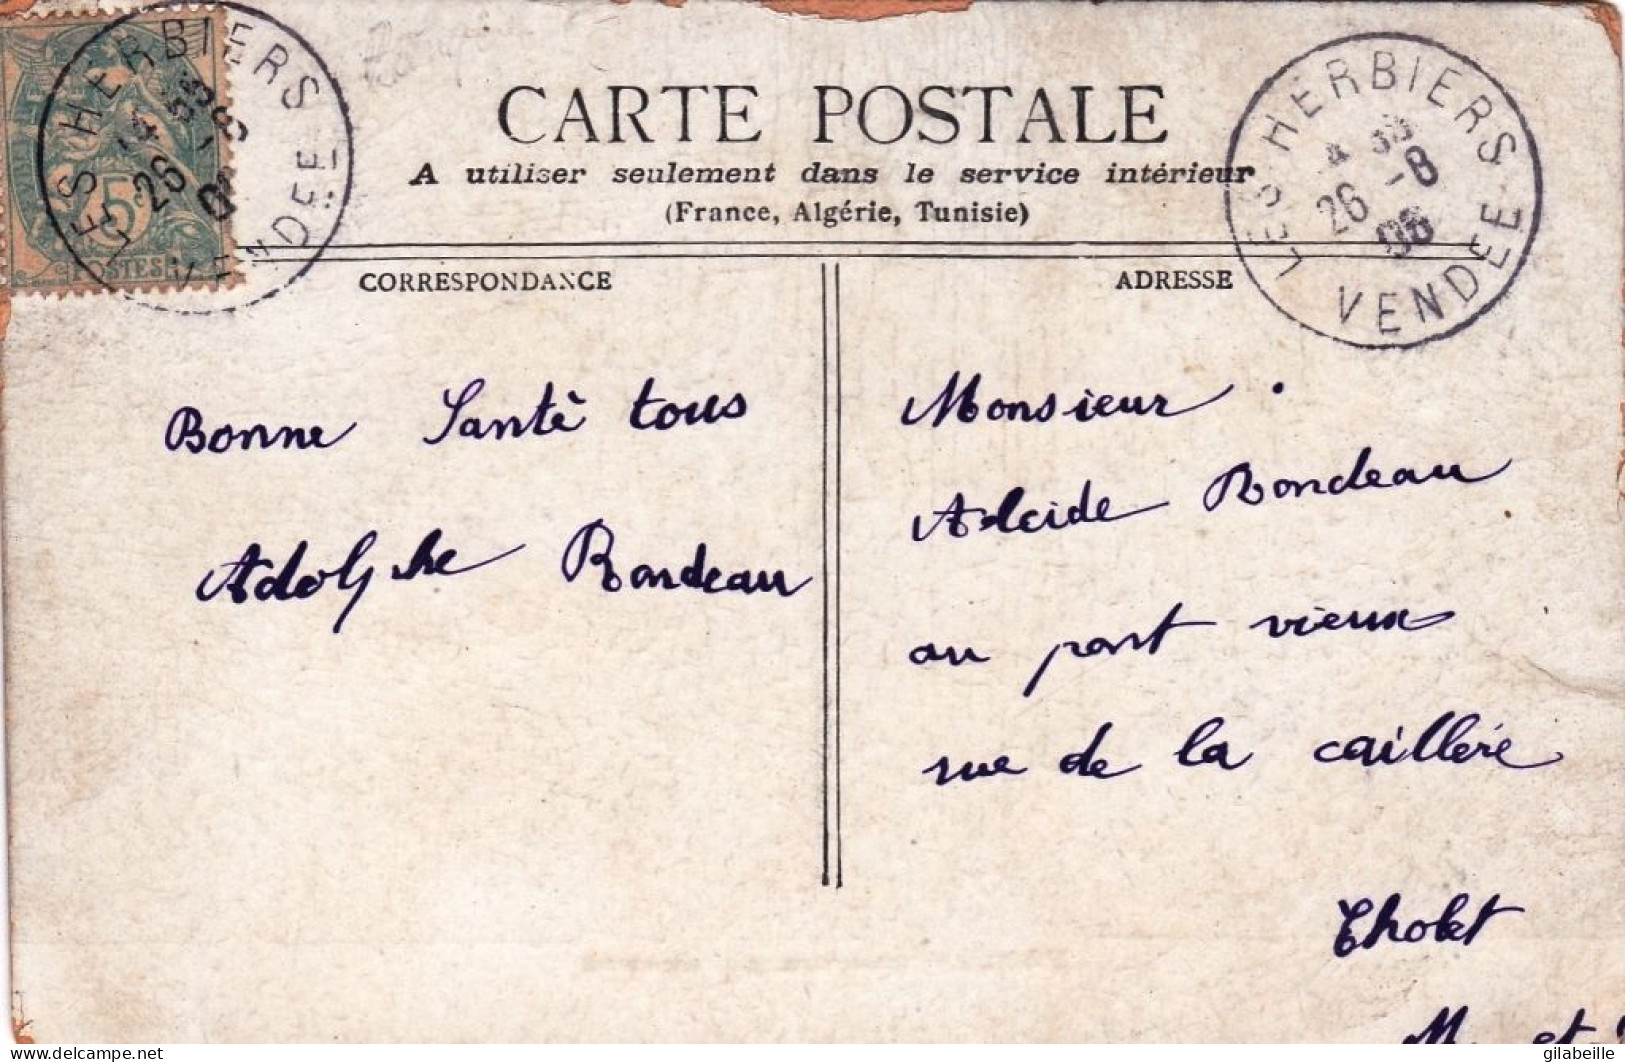 LES HERBIERS
14 35
26 -8
VENDÉE
5c
POSTES
CARTE POSTALE
A utiliser seulement dans le service intérieur
(France, Algérie, Tunisie)
LES HERBIERS
4 35
26 -8
06
VENDÉE
CORRESPONDANCE
Bonne Santè tous
Adolphe Rondeau
ADRESSE
Monsieur
Alcide Rondeau
au pont vieux
rue de la caillére
Cholet
M et
delcampe.net
gilabeille